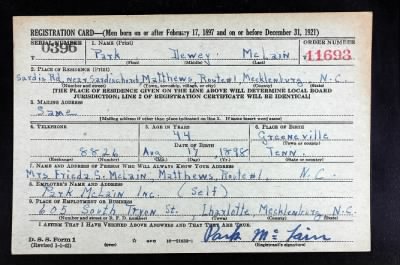 REGISTRATION CARD—(Men born on or after February 17, 1897 and on or before December 31, 1921)
SERIAL NUMBER 1. NAME (Print) ORDER NUMBER
0396 Park Dewey McLain 11693
(First) (Middle) (Last)
2. PLACE OF RESIDENCE (Print)
Sardis Rd. near Sardis church Matthews, Route 1, Mecklenburg, N.C.
(Number and street) (Town, township, village, or city) (County) (State)
[THE PLACE OF RESIDENCE GIVEN ON THE LINE ABOVE WILL DETERMINE LOCAL BOARD
JURISDICTION; LINE 2 OF REGISTRATION CERTIFICATE WILL BE IDENTICAL]
3. MAILING ADDRESS
Same
[Mailing address if other than place indicated on line 2. If same insert word same]
4. TELEPHONE 5. AGE IN YEARS 6. PLACE OF BIRTH
44 Greeneville
DATE OF BIRTH (Town or county)
8826 Aug 17 1898 Tenn.
(Exchange) (Number) (Mo.) (Day) (Yr.) (State or country)
7. NAME AND ADDRESS OF PERSON WHO WILL ALWAYS KNOW YOUR ADDRESS
Mrs Frieda S. McLain, Matthews, Route 1, N.C.
8. EMPLOYER'S NAME AND ADDRESS
Park McLain Inc. (Self)
9. PLACE OF EMPLOYMENT OR BUSINESS
605 South Tryon St., Charlotte, Mecklenburg, N.C.
(Number and street or R. F. D. number) (Town) (County) (State)
I AFFIRM THAT I HAVE VERIFIED ABOVE ANSWERS AND THAT THEY ARE TRUE.
D. S. S. Form 1 Park McLain
(Revised 1-1-42) (over) (Registrant's signature)